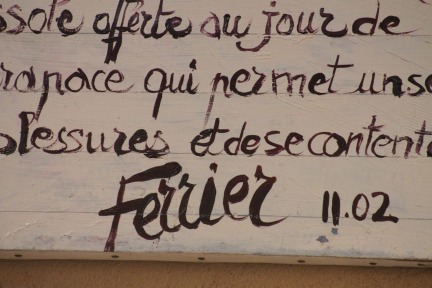 offerte au jour de
qui permet un
blessures et de se content
Ferrier 11.02